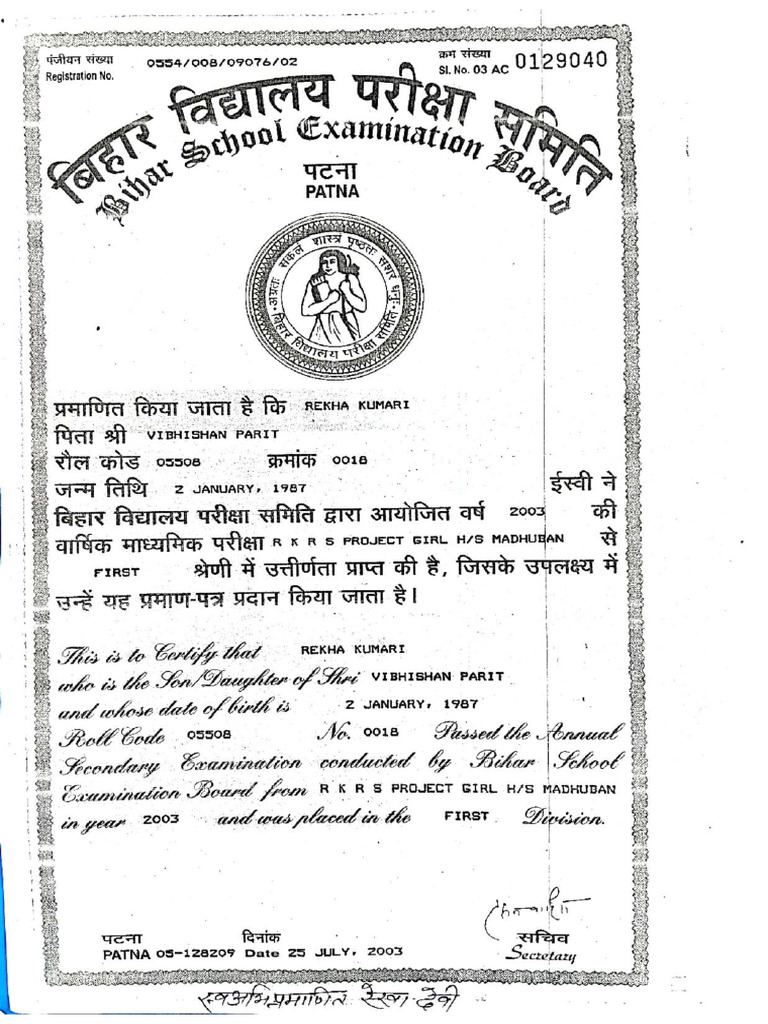 पंजीयन संख्या 0554/008/09076/02 क्रम संख्या
Registration No. Sl. No. 03 AC 0129040
बिहार विद्यालय परीक्षा समिति
Bihar School Examination Board
पटना
PATNA
अग्रतः सकलं शास्त्रं पृष्ठतः सशर धनुः
बिहार विद्यालय परीक्षा समिति
प्रमाणित किया जाता है कि REKHA KUMARI
पिता श्री VIBHISHAN PARIT
रौल कोड 05508 क्रमांक 0018
जन्म तिथि 2 JANUARY, 1987 ईस्वी ने
बिहार विद्यालय परीक्षा समिति द्वारा आयोजित वर्ष 2003 की
वार्षिक माध्यमिक परीक्षा R K R S PROJECT GIRL H/S MADHUBAN से
FIRST श्रेणी में उत्तीर्णता प्राप्त की है, जिसके उपलक्ष्य में
उन्हें यह प्रमाण-पत्र प्रदान किया जाता है।
This is to Certify that REKHA KUMARI
who is the Son/Daughter of Shri VIBHISHAN PARIT
and whose date of birth is 2 JANUARY, 1987
Roll Code 05508 No. 0018 Passed the Annual
Secondary Examination conducted by Bihar School
Examination Board from R K R S PROJECT GIRL H/S MADHUBAN
in year 2003 and was placed in the FIRST Division.
पटना दिनांक सचिव
PATNA 05-128209 Date 25 JULY, 2003 Secretary
स्वअभिप्रमाणित रेखा देवी